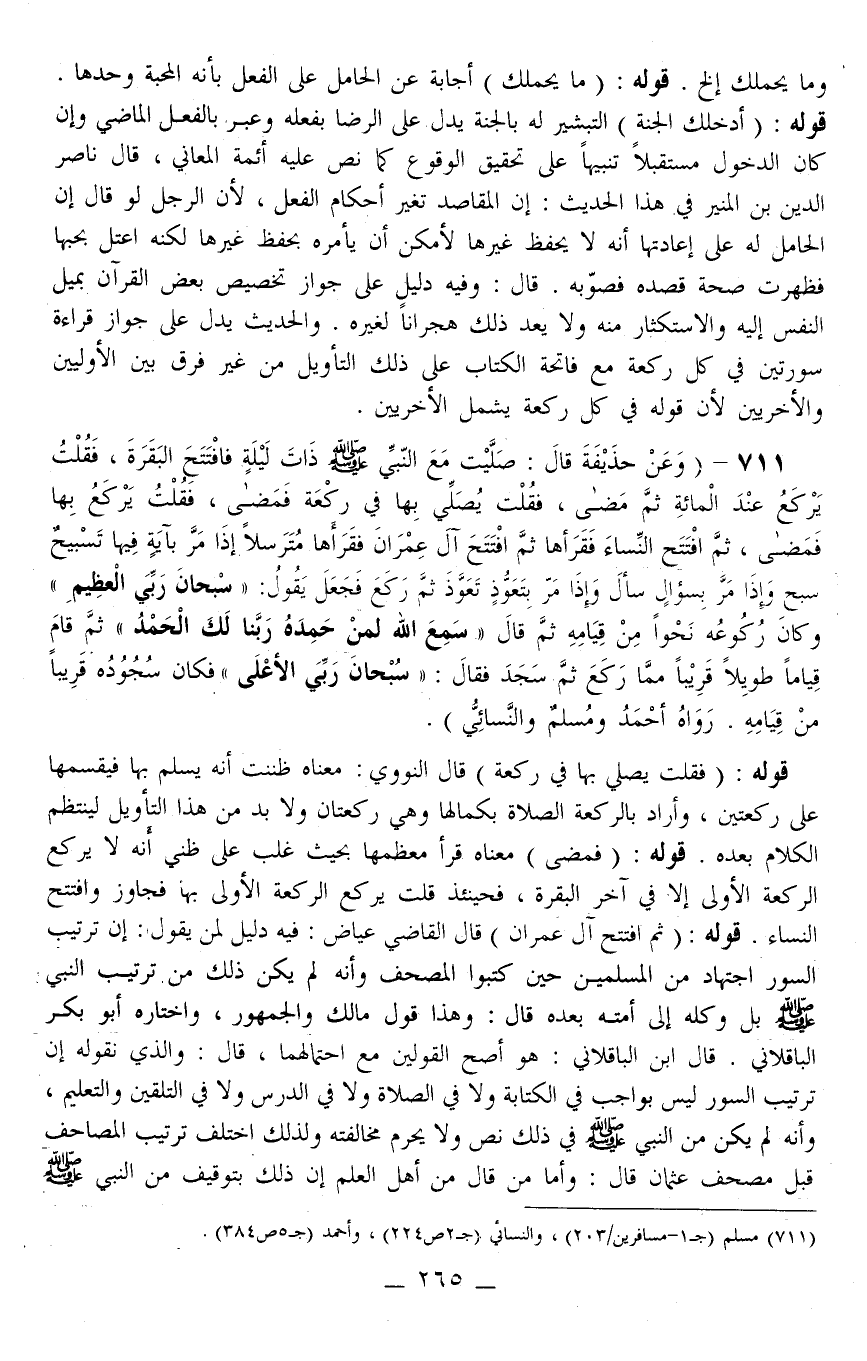 وما يحملك إلخ . قوله : ( ما يحملك ) أجابة عن الحامل على الفعل بأنه المحبة وحدها .
قوله : ( أدخلك الجنة ) التبشير له بالجنة يدل على الرضا بفعله وعبر بالفعل الماضي وإن
كان الدخول مستقبلاً تنبيهاً على تحقيق الوقوع كما نص عليه أئمة المعاني ، قال ناصر
الدين بن المنير في هذا الحديث : إن المقاصد تغير أحكام الفعل ، لأن الرجل لو قال إن
الحامل له على إعادتها أنه لا يحفظ غيرها لأمكن أن يأمره بحفظ غيرها لكنه اعتل بحبها
فظهرت صحة قصده فصوّبه . قال : وفيه دليل على جواز تخصيص بعض القرآن بميل
النفس إليه والاستكثار منه ولا يعد ذلك هجراناً لغيره . والحديث يدل على جواز قراءة
سورتين في كل ركعة مع فاتحة الكتاب على ذلك التأويل من غير فرق بين الأوليين
والأخريين لأن قوله في كل ركعة يشمل الأخريين .
٧١١ – ( وَعَنْ حذَيْفَةَ قالَ : صلَّيْت مَعَ النّبيِّ ﷺ ذَاتَ لَيْلَةٍ فافْتَتَحَ البَقَرَةَ ، فَقُلْتُ
يَرْكَعُ عنْدَ الْمائةِ ثمَّ مَضىٰ ، فقُلْت يُصَلِّي بِها في ركْعَة فَمَضىٰ ، فَقُلْتُ يَرْكَعُ بِها
فَمَضىٰ ، ثمَّ افْتَتَح النِّساءَ فَقَرَأها ثمَّ افْتَتَحَ آلَ عِمْرَانَ فَقرَأَها مُتَرَسلاً إذَا مَرَّ بآيَةٍ فِيها تَسْبيحٌ
سبح وَإذَا مَرَّ بِسؤالٍ سأَلَ وَإذَا مَرّ بِتَعَوُّذٍ تَعَوَّذَ ثمَّ رَكَعَ فَجَعَلَ يَقُولُ: « سبْحانَ رَبِّي الْعظِيم »
وكانَ رُكُوعُه نَحْواً مِنْ قِيَامِهِ ثمَّ قالَ « سَمِعَ الله لمنْ حَمِدَهُ رَبَّنا لَكَ الْحَمْدُ » ثمَّ قامَ
قِياماً طويلاً قَرِيْباً ممَّا رَكَعَ ثمَّ سَجَدَ فقالَ : « سُبْحانَ رَبِّي الأعْلَى » فكان سُجُوُده قَرِيباً
منْ قِيَامِهِ . رَوَاهُ أحْمَدُ ومُسلمٌ والنَّسائِيُّ ) .
قوله : ( فقلت يصلي بها في ركعة ) قال النووي : معناه ظننت أنه يسلم بها فيقسمها
على ركعتين ، وأراد بالركعة الصلاة بكمالها وهي ركعتان ولا بد من هذا التأويل لينتظم
الكلام بعده . قوله : ( فمضى ) معناه قرأ معظمها بحيث غلب على ظني أنه لا يركع
الركعة الأولى إلا في آخر البقرة ، فحينئذ قلت يركع الركعة الأولى بها فجاوز وافتتح
النساء . قوله : ( ثم افتتح آل عمران ) قال القاضي عياض : فيه دليل لمن يقول : إن ترتيب
السور اجتهاد من المسلمين حين كتبوا المصحف وأنه لم يكن ذلك من ترتيب النبي
ﷺ بل وكله إلى أمته بعده قال : وهذا قول مالك والجمهور ، واختاره أبو بكر
الباقلاني . قال ابن الباقلاني : هو أصح القولين مع احتمالهما ، قال : والذي نقوله إن
ترتيب السور ليس بواجب في الكتابة ولا في الصلاة ولا في الدرس ولا في التلقين والتعليم ،
وأنه لم يكن من النبي ﷺ في ذلك نص ولا يحرم مخالفته ولذلك اختلف ترتيب المصاحف
قبل مصحف عثمان قال : وأما من قال من أهل العلم إن ذلك بتوقيف من النبي ﷺ
(٧١١) مسلم (جـ١-مسافرين/٢٠٣) ، والنسائي (جـ٢ص٢٢٤) ، وأحمد (جـ٥ص٣٨٤) .
— ٢٦٥ —